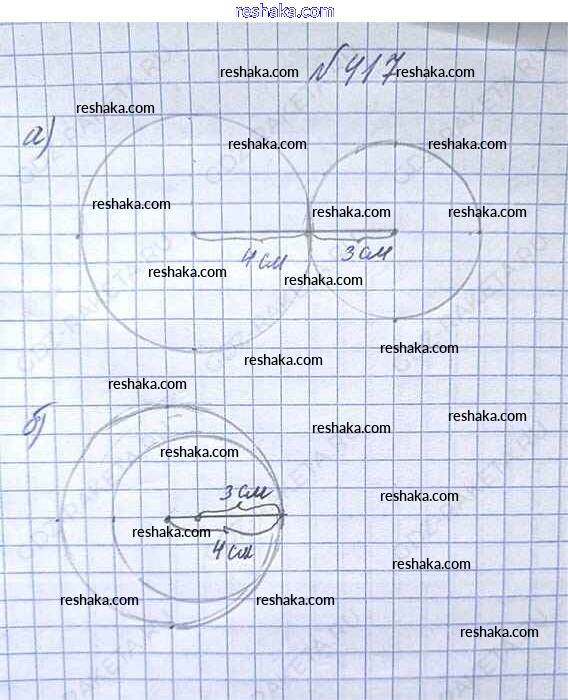 reshaka.com
№417
reshaka.com reshaka.com
reshaka.com
а)
reshaka.com reshaka.com
reshaka.com reshaka.com reshaka.com
4 см 3 см
reshaka.com reshaka.com
reshaka.com reshaka.com
reshaka.com
б)
reshaka.com reshaka.com
reshaka.com
3 см
reshaka.com
reshaka.com
4 см
reshaka.com
reshaka.com reshaka.com
reshaka.com